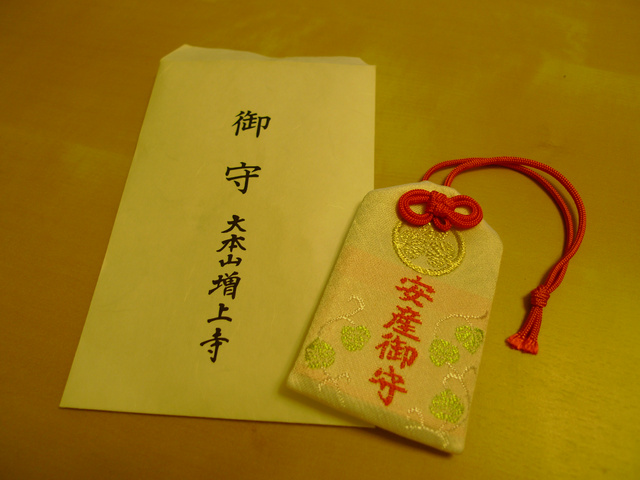 御守
大本山増上寺
安産御守